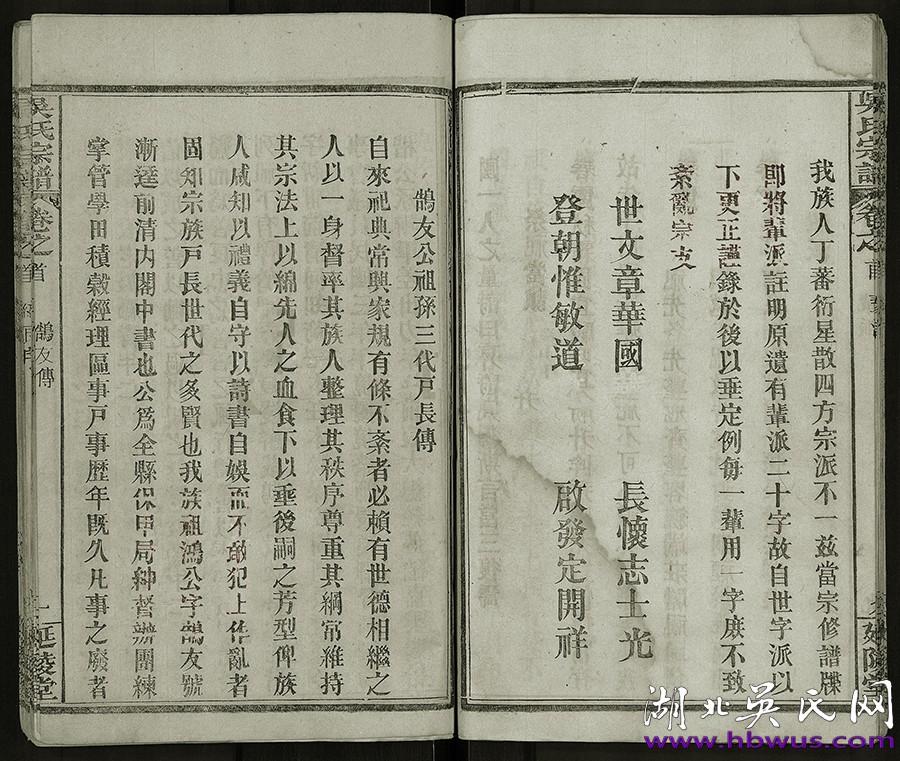 我族人丁蕃衍星散四方宗派不一茲當宗修譜牒
即將輩派註明原遺有輩派二十字故自世字派以
下更正謹錄於後以垂定例每一輩用一字庶不致
紊亂宗支
世文章華國 長懷志士光
登朝惟敏道 啟發定開祥
吳氏宗譜 卷之首 鵠友傳 一 延陵堂
鵠友公祖孫三代戸長傳
自來祀典常興家規有條不紊者必賴有世德相繼之
人以一身督率其族人整理其秩序尊重其綱常維持
其宗法上以綿先人之血食下以垂後嗣之芳型俾族
人咸知以禮義自守以詩書自娛而不敢犯上作亂者
固知宗族戸長世代之多賢也我族祖鴻公字鵠友號
漸逵前清内閣中書也公爲全縣保甲局紳督辦團練
掌管學田積穀經理區事戸事歷年既久凡事之廢者
湖北吳氏网
www.hbwus.com